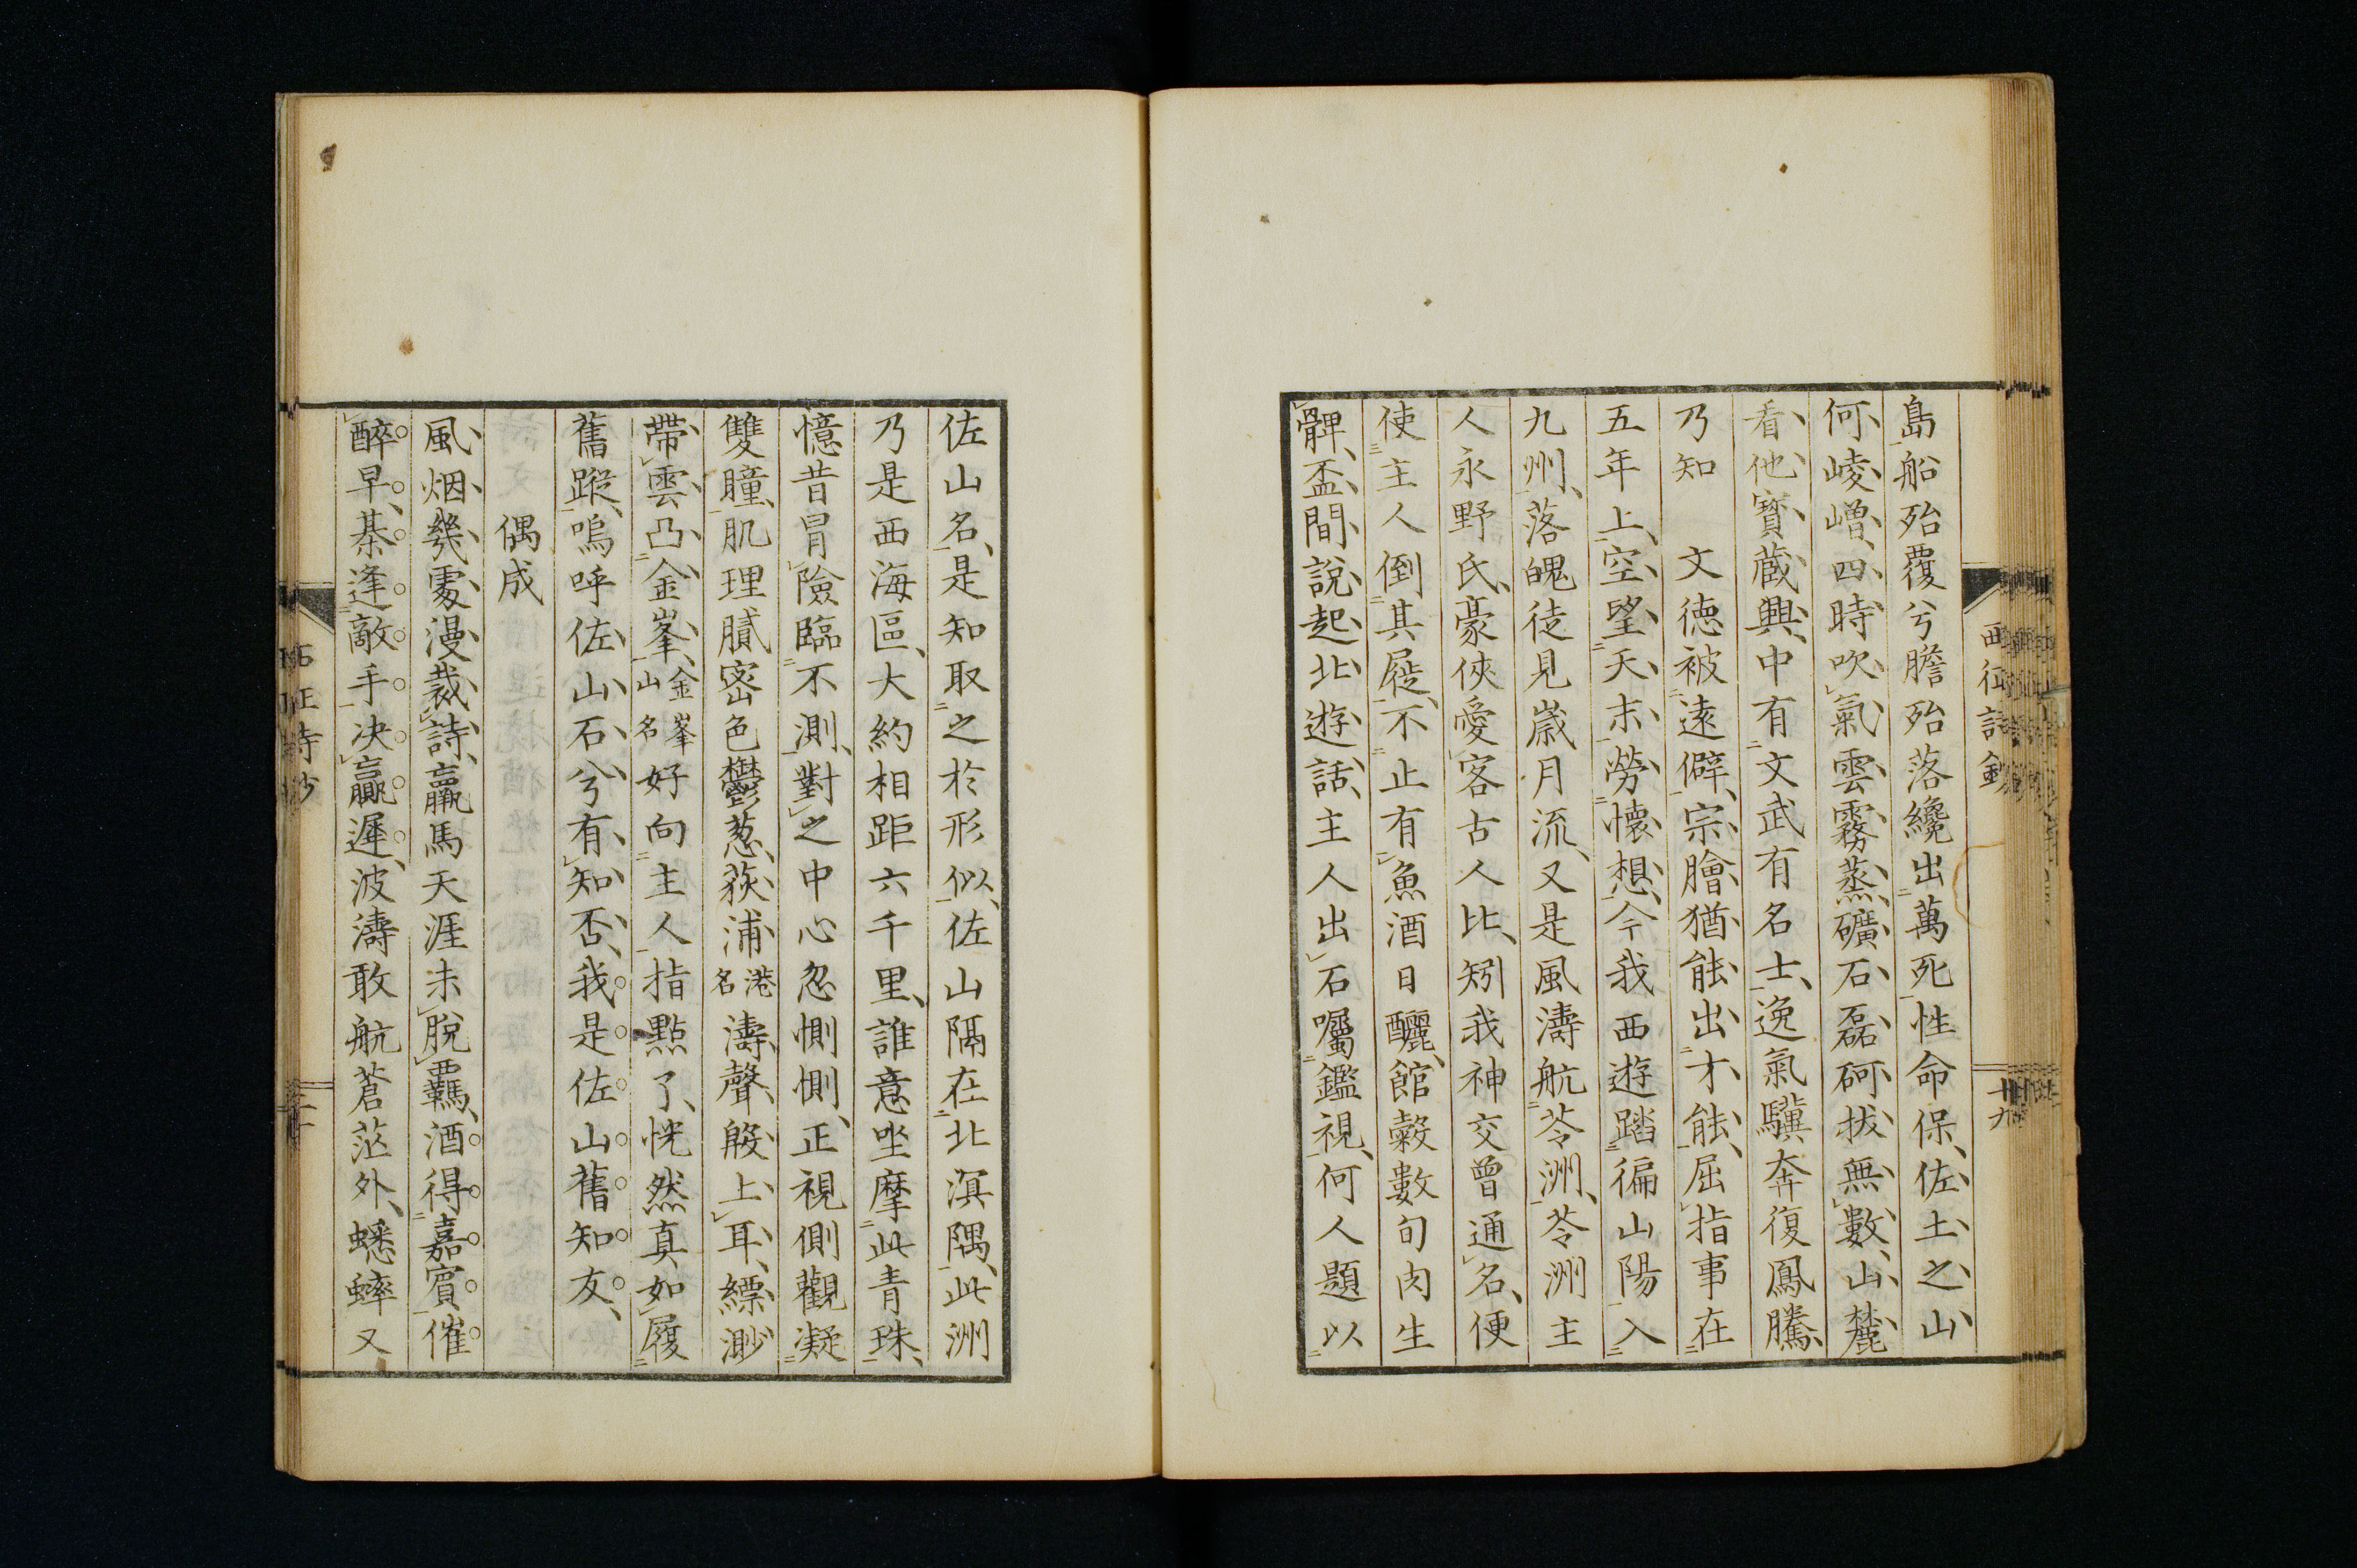 西征詩鈔
十九
島船殆覆兮膽殆落纔出萬死性命保佐土之山
何崚嶒四時吹氣雲霧蒸礦石磊砢拔無數山麓
看他寳蔵興中有文武有名士逸氣驥奔復鳳騰
乃知　文徳被遠僻宗膾猶能出才能屈指事在
五年上空望天末勞懷想今我西遊踏徧山陽入
九州落魄徒見歳月流又是風濤航苓洲苓洲主
人永野氏豪俠愛客古人比矧我神交曾通名便
使主人倒其屣不止有魚酒日釃館穀數旬肉生
髀盃間說起北遊話主人出石囑鑑視何人題以
佐山名是知取之於形似佐山隔在北溟隅此洲
乃是西海區大約相距六千里誰意坐摩此青珠
憶昔冒險臨不測對之中心忽惻惻正視側觀凝
雙瞳肌理膩密色鬱葱荻浦港名濤聲殷上耳縹渺
帶雲凸金峯金峯山名好向主人指點了恍然真如履
舊蹤嗚呼佐山石兮有知否我是佐山舊知友
偶成
風烟幾處漫裁詩羸馬天涯未脫羈酒得嘉賓催
醉早棊逢敵手决贏遲波濤敢航蒼茫外蟋蟀又